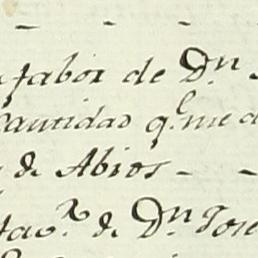 - - -
favor de Dⁿ
Cantidad qᵉ me d
de Abios - -
favʳ. de Dⁿ Jose